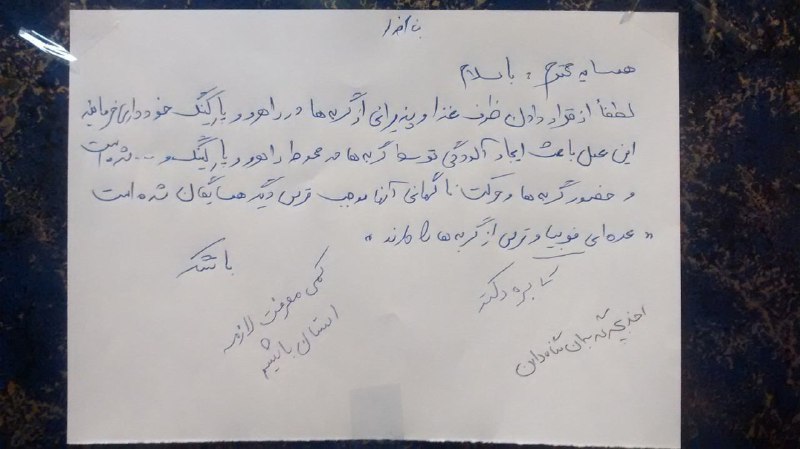 بنام خدا
همسایه محترم : با سلام
لطفاً از قرار دادن ظرف غذا و پذیرائی از گربه ها در راهرو و پارکینگ خودداری فرمائید
این عمل باعث ایجاد آلودگی توسط گربه ها در محوط راهرو و پارکینگ و ... شده است
و حضور گربه ها و حرکت ناگهانی آنها موجب ترس دیگر همسایگان شده است
" عده ای فوبیا و ترس از گربه ها را دارند "
با تشکر
بره دکتر
کمی معرفت لازمه
انسان باشیم